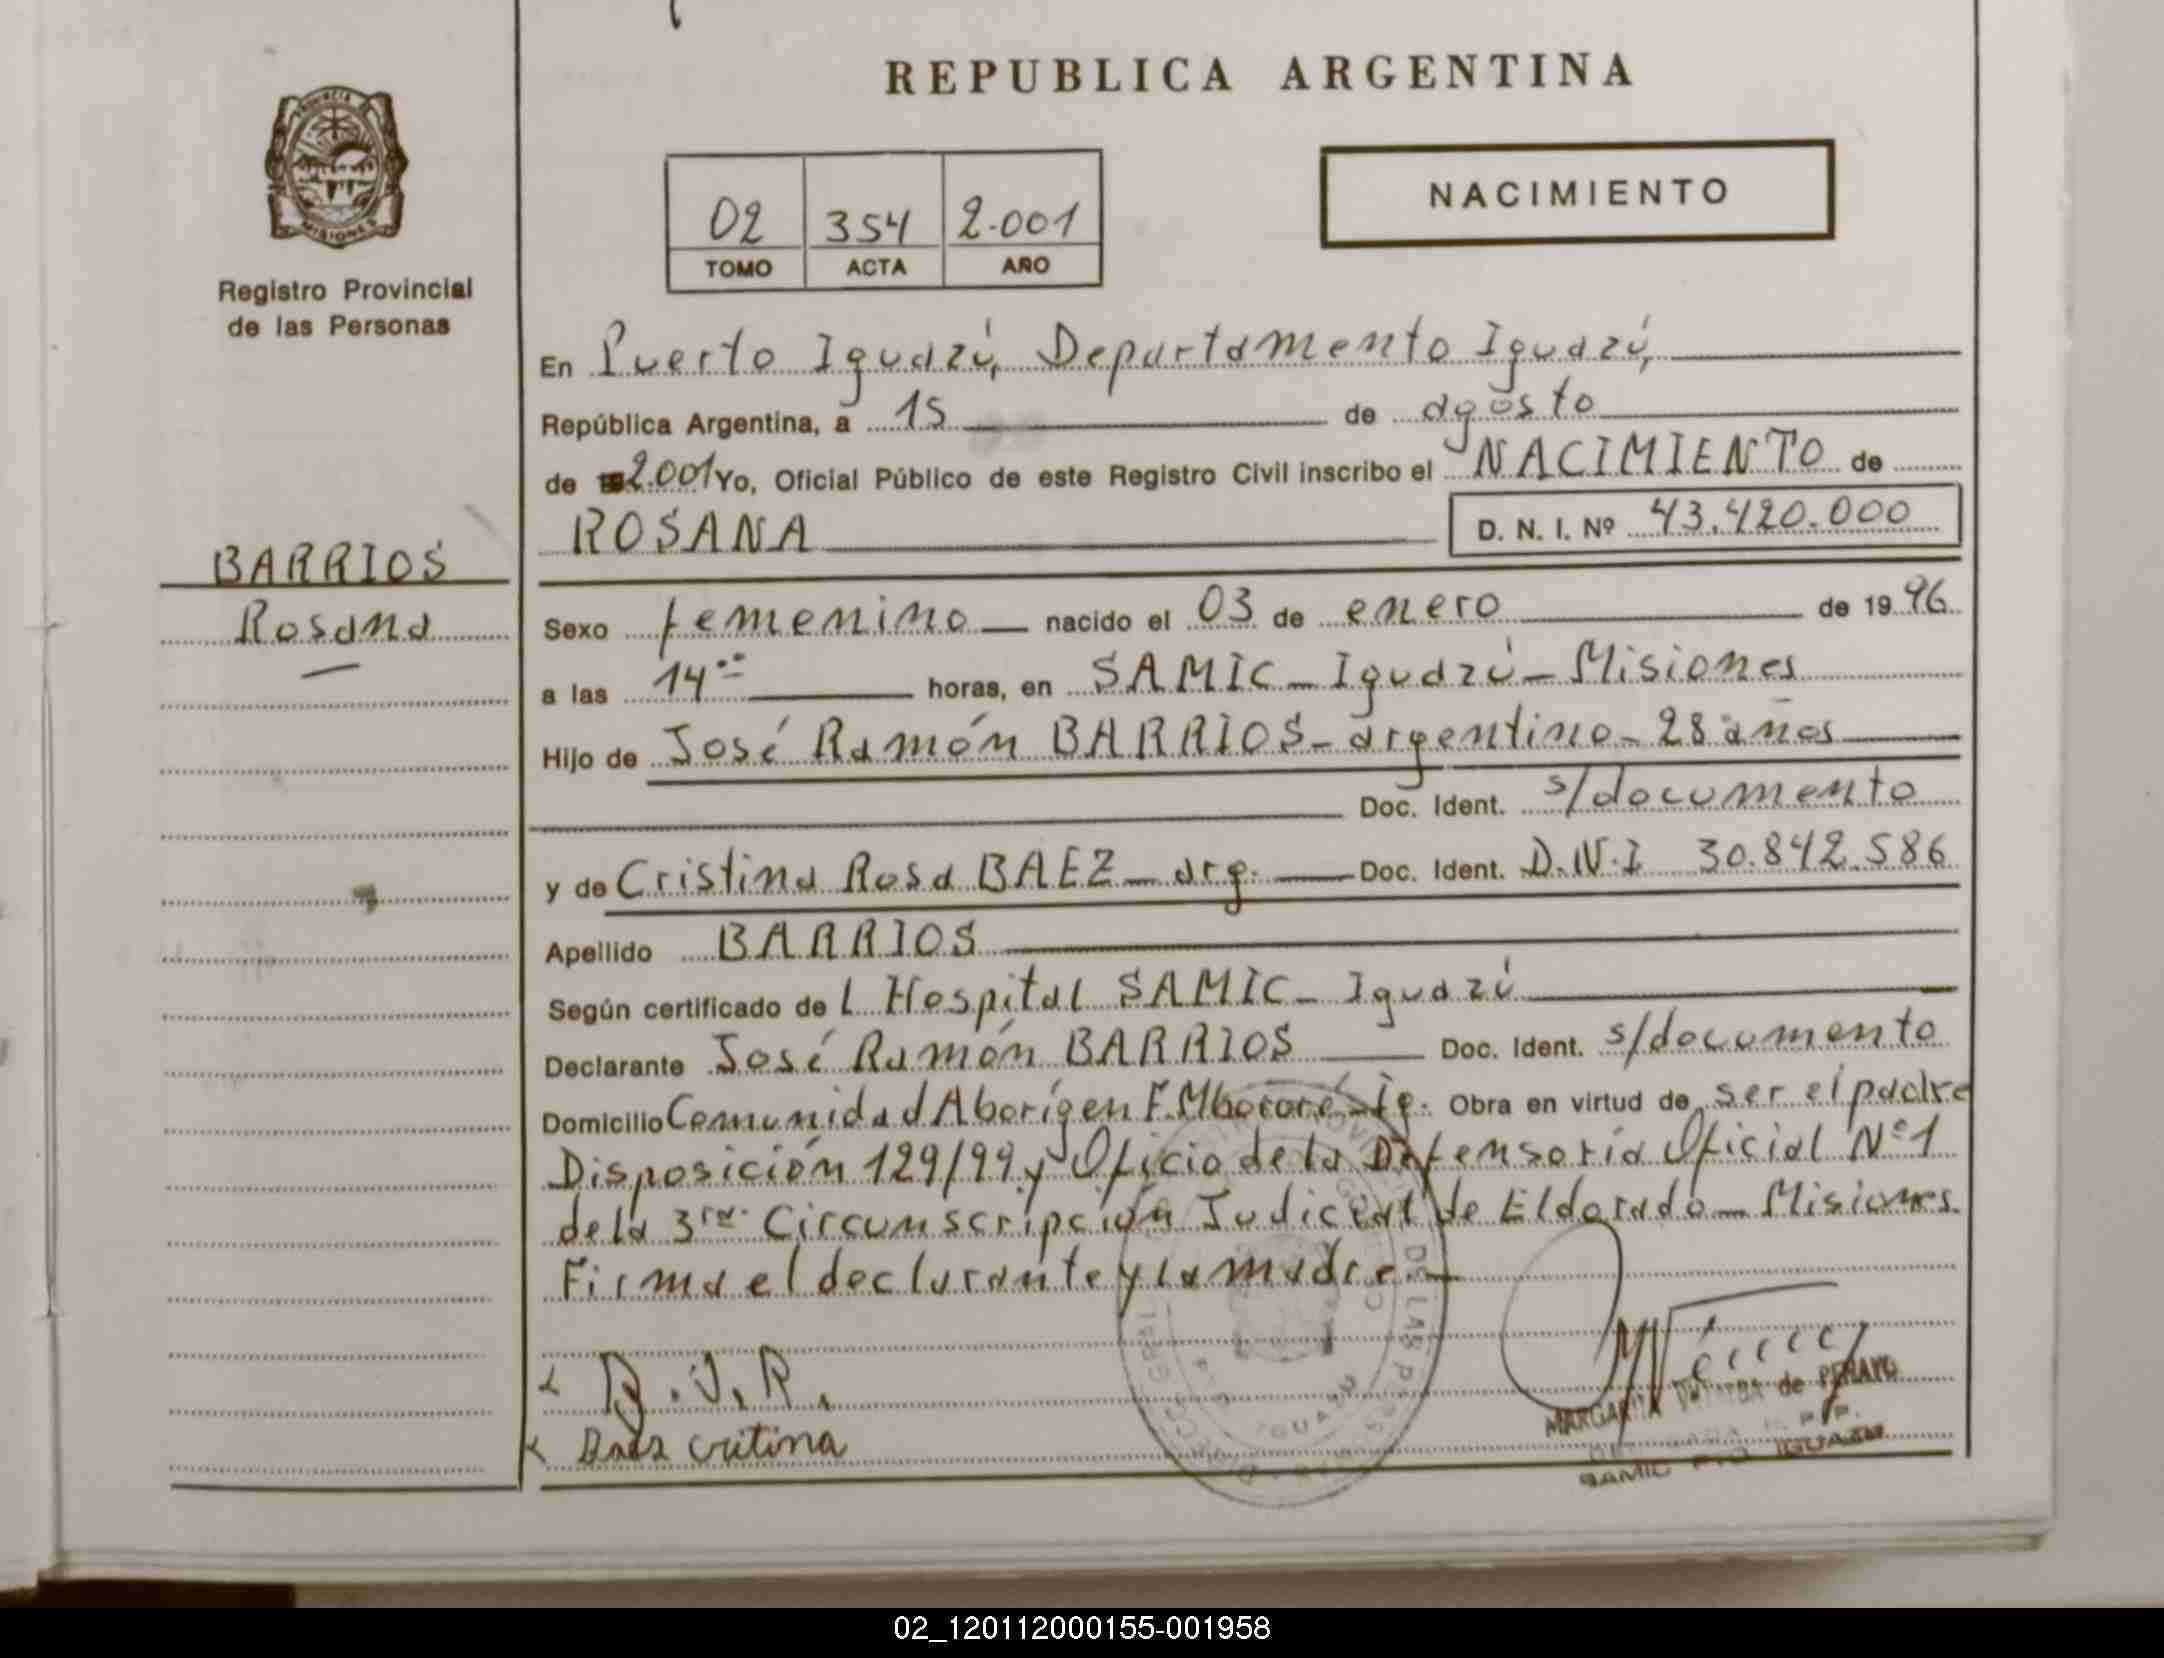 REPUBLICA ARGENTINA
PROVINCIA DE
MISIONES
Registro Provincial
de las Personas
02 354 2.001
TOMO ACTA AÑO
NACIMIENTO
En Puerto Iguazú, Departamento Iguazú,
República Argentina, a 15 de agosto
de 2.001 Yo, Oficial Público de este Registro Civil inscribo el NACIMIENTO de
ROSANA D. N. I. Nº 43.420.000
BARRIOS
Rosana
Sexo femenino nacido el 03 de enero de 1996
a las 14 horas, en SAMIC - Iguazú - Misiones
Hijo de José Ramón BARRIOS - argentino - 28 años
Doc. Ident. s/documento
y de Cristina Rosa BAEZ - arg. Doc. Ident. D.N.I 30.842.586
Apellido BARRIOS
Según certificado del Hospital SAMIC - Iguazú
Declarante José Ramón BARRIOS Doc. Ident. s/documento
Domicilio Comunidad Aborígen F. Mbororé - Ig. Obra en virtud de ser el padre
Disposición 129/99 y Oficio de la Defensoría Oficial Nº 1
de la 3ra. Circunscripción Judicial de Eldorado - Misiones.
Firma el declarante y la madre. -
B. J. R.
Baez critina
DE LAS
IGUAZU
MARGARITA de
SAMIC PTO IGUAZU
02_120112000155-001958